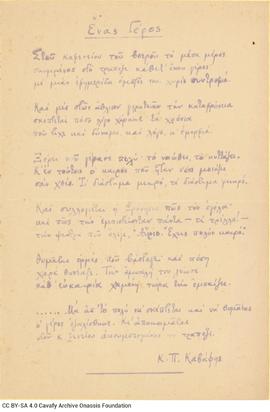 Ένας Γέρος
Στου καφενείου του βοερού το μέσα μέρος
σκυμμένος στο τραπέζι κάθετ' ένας γέρος·
με μιαν εφημερίδα εμπρός του, χωρίς συντροφιά.
Και μες στων άθλιων γηρατειών την καταφρόνια
σκέπτεται πόσο λίγο χάρηκε τα χρόνια
που είχε και δύναμι, και λόγο, κ' εμορφιά.
Ξέρει που γέρασε πολύ· το νοιώθει, το κυττάζει.
Κ' εν τούτοις ο καιρός που ήταν νέος μοιάζει
σαν χθές. Τι διάστημα μικρό, τι διάστημα μικρό.
Και συλλογιέται η Φρόνησις πώς τον εγέλα·
και πώς την εμπιστεύονταν πάντα — τι τρέλλα! —
την ψεύτρα που έλεγε· «Αύριο. Έχεις πολύν καιρό.»
Θυμάται ορμές που βάσταγε· και πόση
χαρά θυσίαζε. Την άμυαλή του γνώσι
κάθ' ευκαιρία χαμένη τώρα την εμπαίζει.
.... Μα απ' το πολύ να σκέπτεται και να θυμάται
ο γέρος εζαλίσθηκε. Κι αποκοιμάται
στου καφενείου ακουμπισμένος το τραπέζι.
Κ. Π. Καβάφης
CC BY-SA 4.0 Cavafy Archive Onassis Foundation